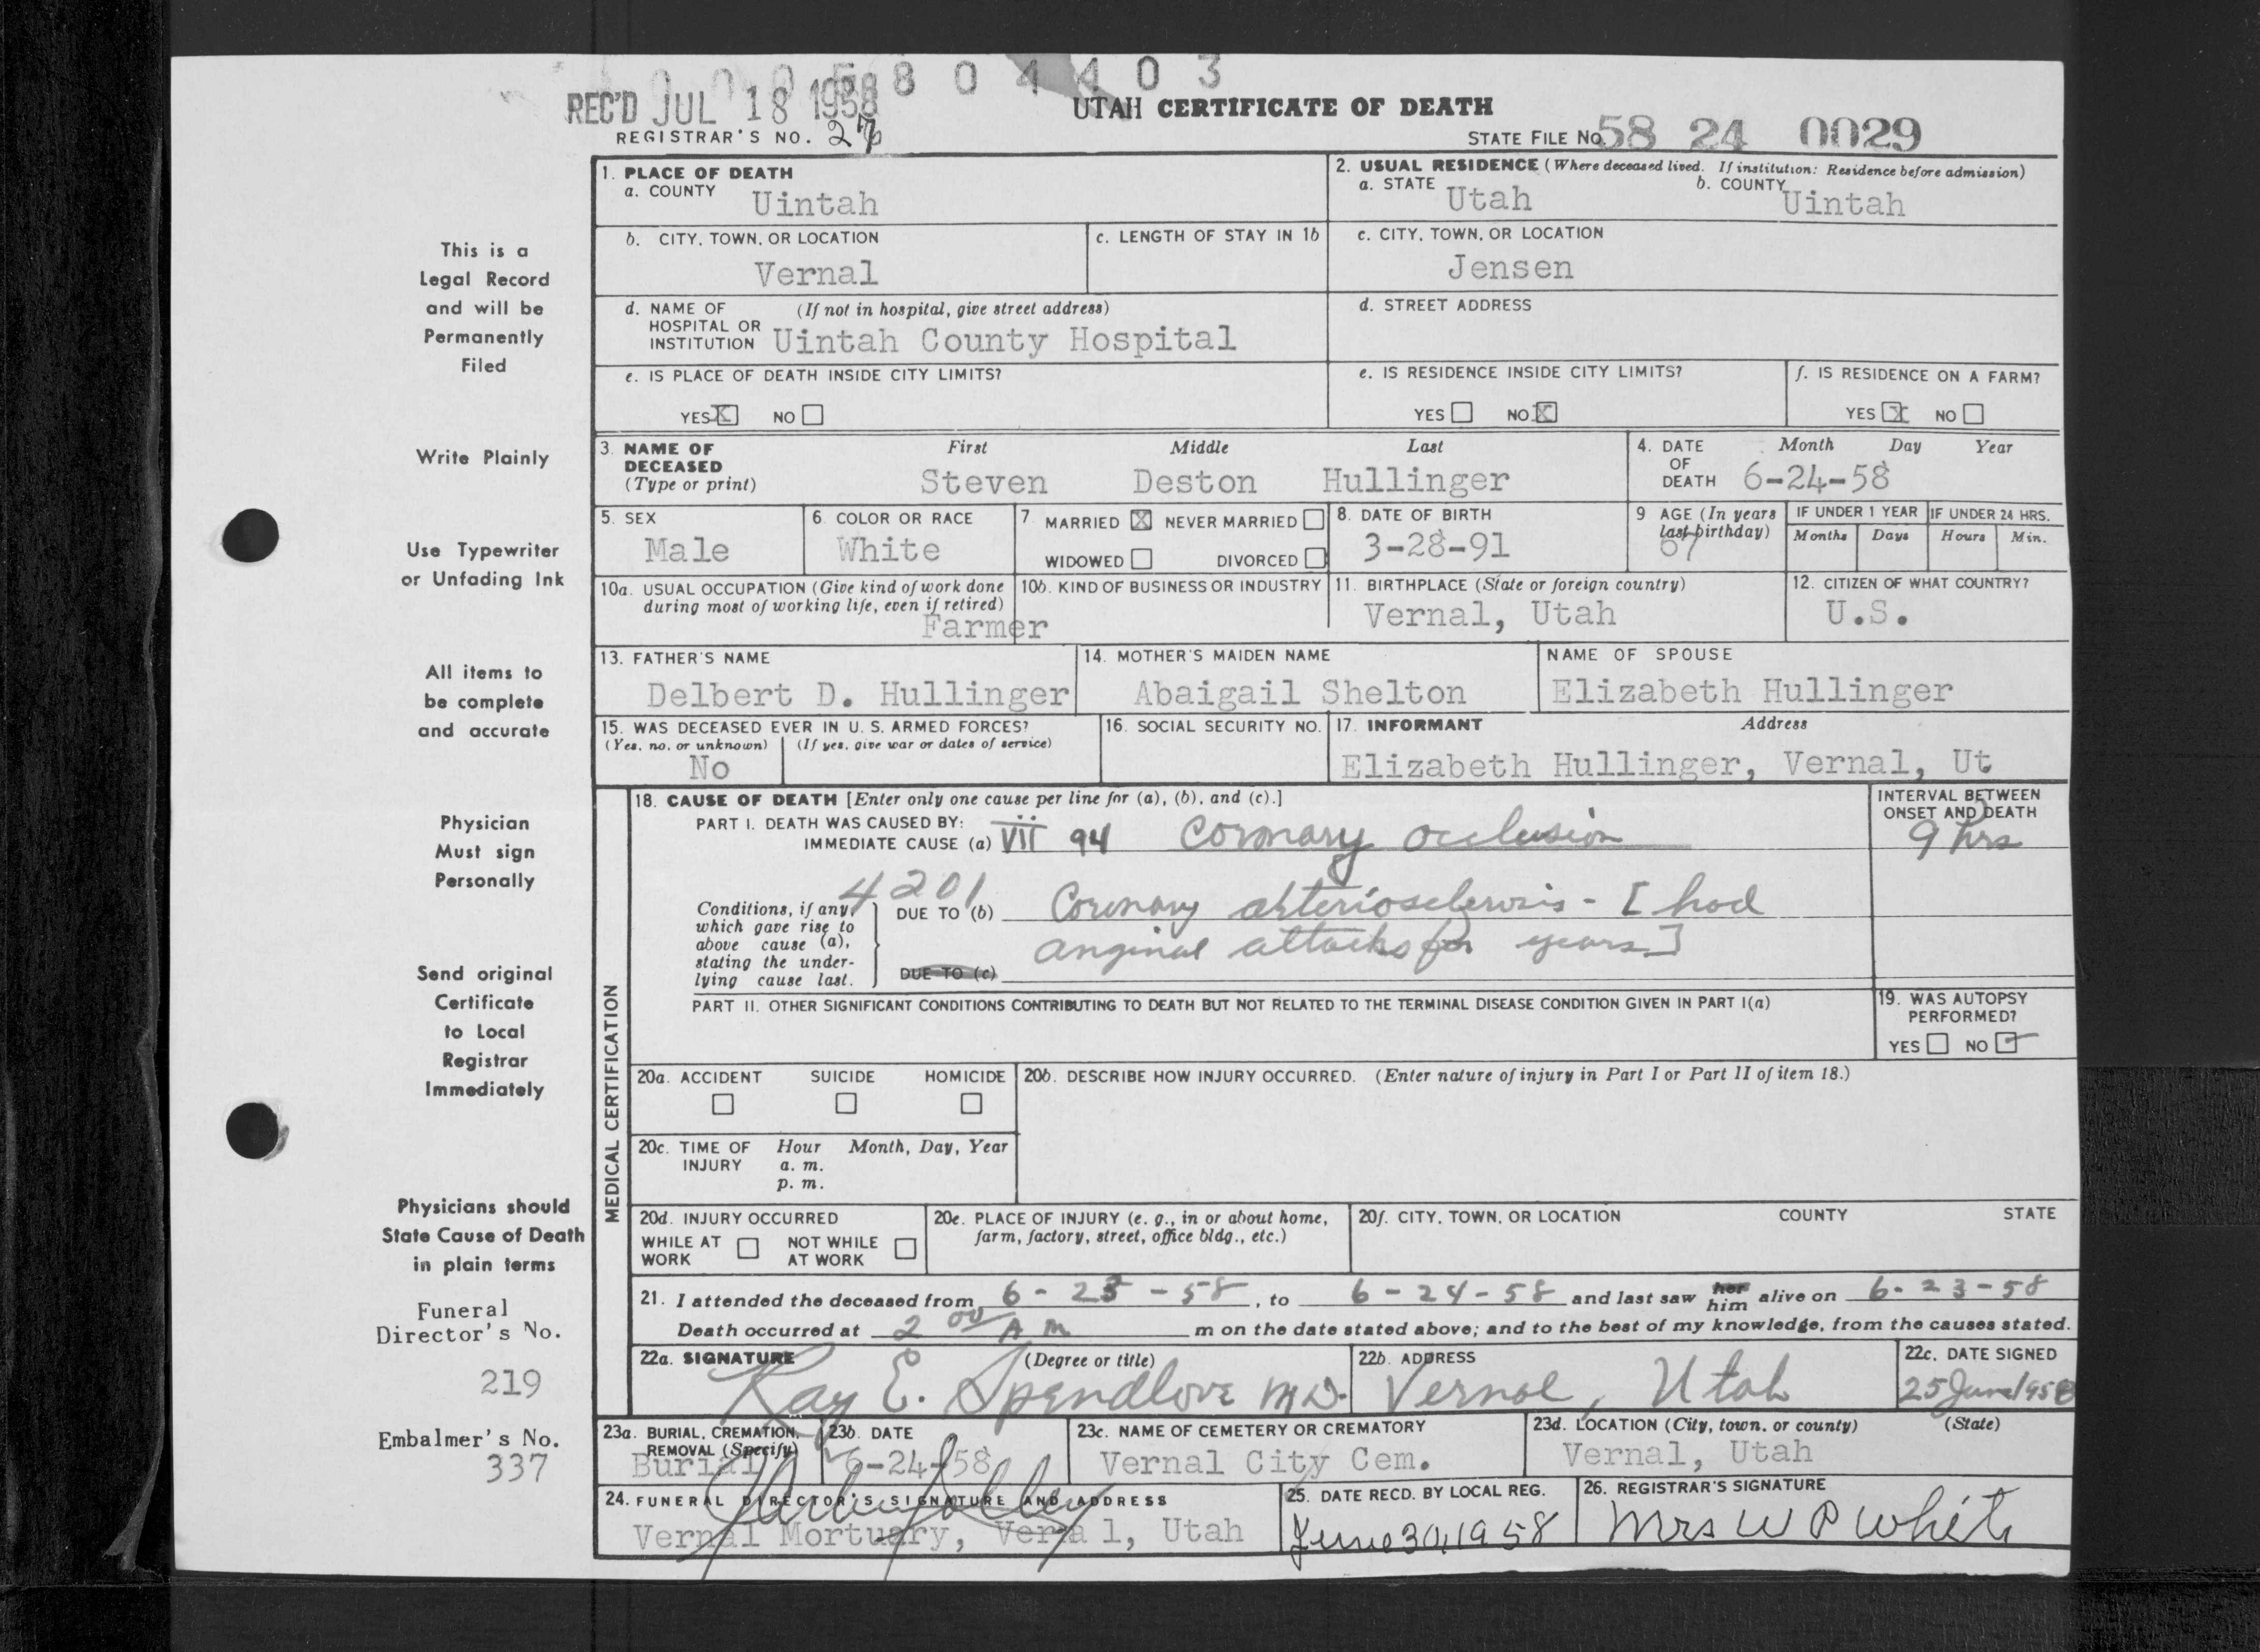 0 0 0 5 8 0 4 4 0 3
REC'D JUL 18 1958
UTAH CERTIFICATE OF DEATH
REGISTRAR'S NO. 27
STATE FILE NO. 58 24 0029
1. PLACE OF DEATH
a. COUNTY Uintah
2. USUAL RESIDENCE (Where deceased lived. If institution: Residence before admission)
a. STATE Utah b. COUNTY Uintah
b. CITY, TOWN, OR LOCATION Vernal
c. LENGTH OF STAY IN 1b
c. CITY, TOWN, OR LOCATION Jensen
d. NAME OF HOSPITAL OR INSTITUTION (If not in hospital, give street address) Uintah County Hospital
d. STREET ADDRESS
e. IS PLACE OF DEATH INSIDE CITY LIMITS?
YES X NO
e. IS RESIDENCE INSIDE CITY LIMITS?
YES NO X
f. IS RESIDENCE ON A FARM?
YES X NO
3. NAME OF DECEASED (Type or print)
First Middle Last
Steven Deston Hullinger
4. DATE OF DEATH Month Day Year
6-24-58
5. SEX Male
6. COLOR OR RACE White
7. MARRIED X NEVER MARRIED
WIDOWED DIVORCED
8. DATE OF BIRTH 3-28-91
9 AGE (In years last birthday) 67
IF UNDER 1 YEAR Months Days
IF UNDER 24 HRS. Hours Min.
10a. USUAL OCCUPATION (Give kind of work done during most of working life, even if retired) Farmer
10b. KIND OF BUSINESS OR INDUSTRY
11. BIRTHPLACE (State or foreign country) Vernal, Utah
12. CITIZEN OF WHAT COUNTRY? U.S.
13. FATHER'S NAME Delbert D. Hullinger
14. MOTHER'S MAIDEN NAME Abaigail Shelton
NAME OF SPOUSE Elizabeth Hullinger
15. WAS DECEASED EVER IN U. S. ARMED FORCES?
(Yes, no, or unknown) (If yes, give war or dates of service)
No
16. SOCIAL SECURITY NO.
17. INFORMANT Address
Elizabeth Hullinger, Vernal, Ut
MEDICAL CERTIFICATION
18. CAUSE OF DEATH [Enter only one cause per line for (a), (b), and (c).]
INTERVAL BETWEEN ONSET AND DEATH
PART I. DEATH WAS CAUSED BY:
IMMEDIATE CAUSE (a) VII 94 Coronary occlusion 9 hrs
4201
Conditions, if any, which gave rise to above cause (a), stating the underlying cause last.
DUE TO (b) Coronary arteriosclerosis - [had
anginal attacks for years]
DUE TO (c)
PART II. OTHER SIGNIFICANT CONDITIONS CONTRIBUTING TO DEATH BUT NOT RELATED TO THE TERMINAL DISEASE CONDITION GIVEN IN PART I(a)
19. WAS AUTOPSY PERFORMED?
YES NO
20a. ACCIDENT SUICIDE HOMICIDE
20b. DESCRIBE HOW INJURY OCCURRED. (Enter nature of injury in Part I or Part II of item 18.)
20c. TIME OF INJURY Hour Month, Day, Year
a. m.
p. m.
20d. INJURY OCCURRED
WHILE AT WORK NOT WHILE AT WORK
20e. PLACE OF INJURY (e. g., in or about home, farm, factory, street, office bldg., etc.)
20f. CITY, TOWN, OR LOCATION COUNTY STATE
21. I attended the deceased from 6-23-58, to 6-24-58 and last saw her him alive on 6-23-58
Death occurred at 2 00 A m m on the date stated above; and to the best of my knowledge, from the causes stated.
22a. SIGNATURE (Degree or title)
Ray E. Spendlove M.D.
22b. ADDRESS Vernal, Utah
22c. DATE SIGNED 25 June 1958
23a. BURIAL, CREMATION, REMOVAL (Specify) Burial
23b. DATE 6-24-58
23c. NAME OF CEMETERY OR CREMATORY Vernal City Cem.
23d. LOCATION (City, town, or county) (State)
Vernal, Utah
24. FUNERAL DIRECTOR'S SIGNATURE AND ADDRESS
Vernal Mortuary, Verna l, Utah
25. DATE RECD. BY LOCAL REG. June 30, 1958
26. REGISTRAR'S SIGNATURE Mrs W P White
This is a
Legal Record
and will be
Permanently
Filed
Write Plainly
Use Typewriter
or Unfading Ink
All items to
be complete
and accurate
Physician
Must sign
Personally
Send original
Certificate
to Local
Registrar
Immediately
Physicians should
State Cause of Death
in plain terms
Funeral
Director's No.
219
Embalmer's No.
337